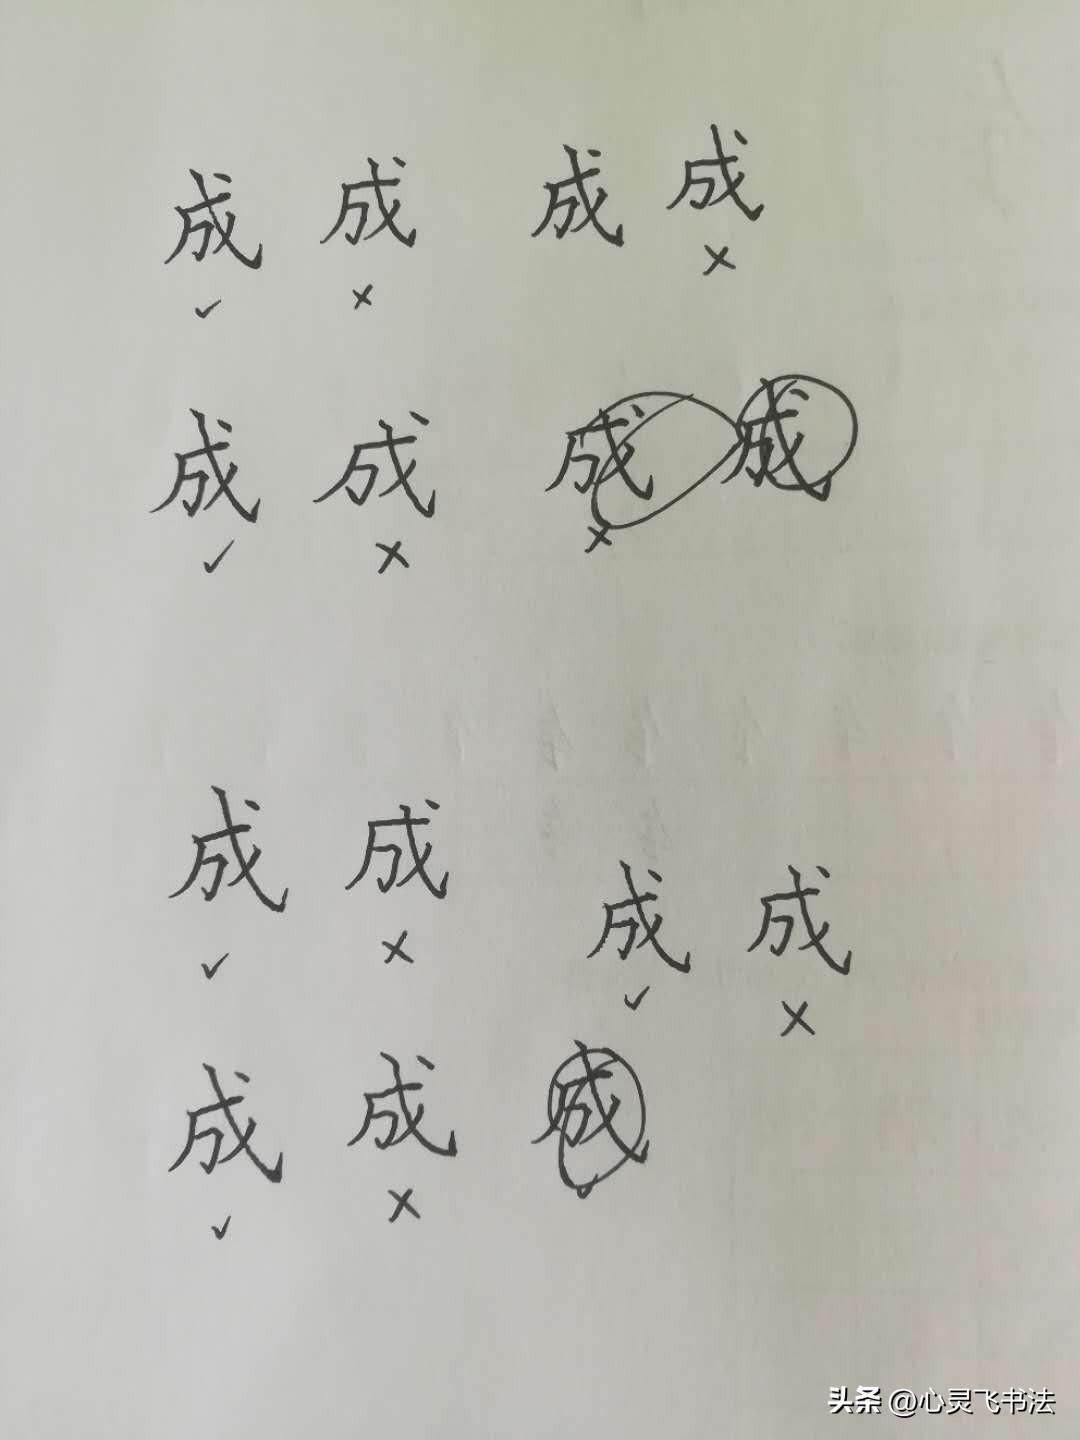 成 成 成 成
✓ × ×
成 成 成 成
✓ × ×
成 成 成 成
✓ × ✓ ×
成 成 成
✓ ×
头条 @心灵飞书法